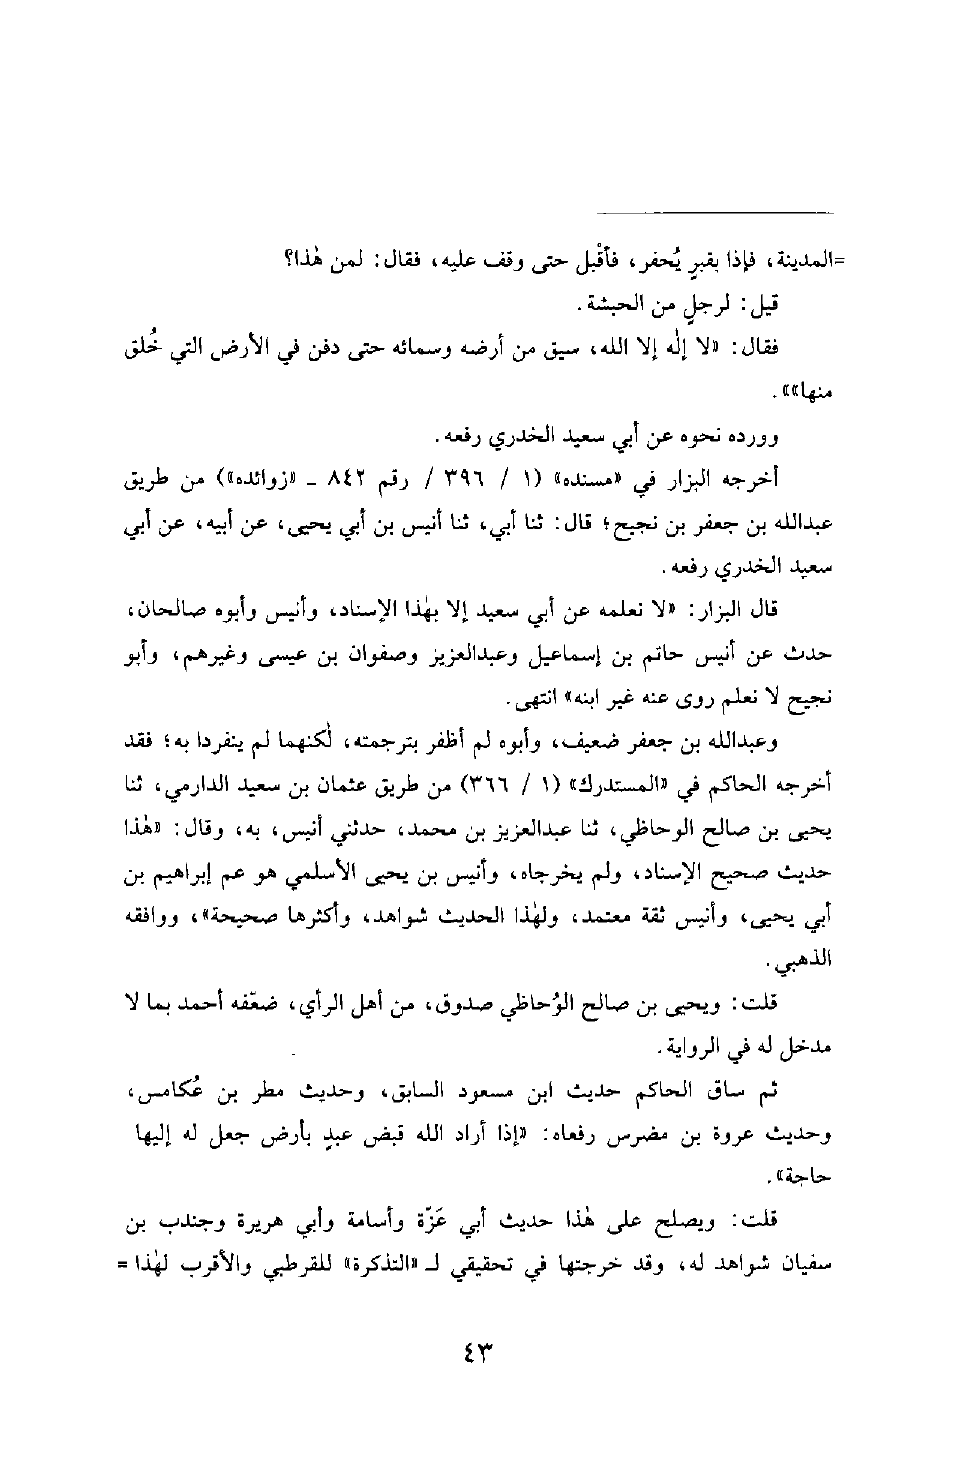 =المدينة، فإذا بقبرٍ يُحفر، فأقْبل حتى وقف عليه، فقال: لمن هٰذا؟
قيل: لرجلٍ من الحبشة.
فقال: «لا إلٰه إلا الله، سيق من أرضه وسمائه حتى دفن في الأرض التي خُلق
منها»».
وورده نحوه عن أبي سعيد الخدري رفعه.
أخرجه البزار في «مسنده» (١ / ٣٩٦ / رقم ٨٤٢ ـ «زوائده») من طريق
عبدالله بن جعفر بن نجيح؛ قال: ثنا أبي، ثنا أنيس بن أبي يحيى، عن أبيه، عن أبي
سعيد الخدري رفعه.
قال البزار: «لا نعلمه عن أبي سعيد إلا بهٰذا الإسناد، وأنيس وأبوه صالحان،
حدث عن أنيس حاتم بن إسماعيل وعبدالعزيز وصفوان بن عيسى وغيرهم، وأبو
نجيح لا نعلم روى عنه غير ابنه» انتهى.
وعبدالله بن جعفر ضعيف، وأبوه لم أظفر بترجمته، لٰكنهما لم ينفردا به؛ فقد
أخرجه الحاكم في «المستدرك» (١ / ٣٦٦) من طريق عثمان بن سعيد الدارمي، ثنا
يحيى بن صالح الوحاظي، ثنا عبدالعزيز بن محمد، حدثني أنيس، به، وقال: «هٰذا
حديث صحيح الإسناد، ولم يخرجاه، وأنيس بن يحيى الأسلمي هو عم إبراهيم بن
أبي يحيى، وأنيس ثقة معتمد، ولهٰذا الحديث شواهد، وأكثرها صحيحة»، ووافقه
الذهبي.
قلت: ويحيى بن صالح الوُحاظي صدوق، من أهل الرأي، ضعّفه أحمد بما لا
مدخل له في الرواية.
ثم ساق الحاكم حديث ابن مسعود السابق، وحديث مطر بن عُكامس،
وحديث عروة بن مضرس رفعاه: «إذا أراد الله قبض عبدٍ بأرض جعل له إليها
حاجة».
قلت: ويصلح على هٰذا حديث أبي عَزّة وأسامة وأبي هريرة وجندب بن
سفيان شواهد له، وقد خرجتها في تحقيقي لـ «التذكرة» للقرطبي والأقرب لهٰذا =
٤٣